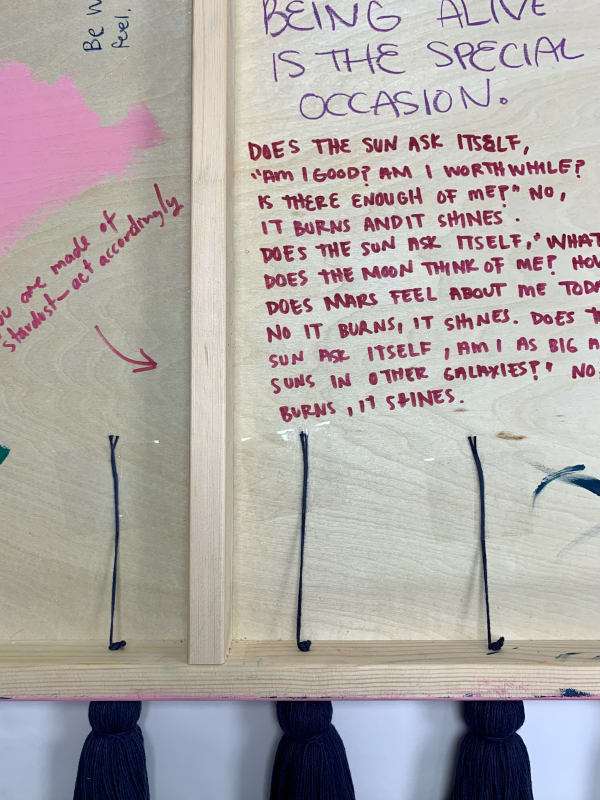 Be
feel.
BEING ALIVE
IS THE SPECIAL
OCCASION.
DOES THE SUN ASK ITSELF,
"AM I GOOD? AM I WORTHWHILE?
IS THERE ENOUGH OF ME?" NO,
IT BURNS AND IT SHINES.
DOES THE SUN ASK ITSELF, "WHAT
DOES THE MOON THINK OF ME?
DOES MARS FEEL ABOUT ME
NO IT BURNS, IT SHINES. DOES
SUN ASK ITSELF, AM I AS BIG
SUNS IN OTHER GALAXIES?" NO
BURNS, IT SHINES.
are made of
stardust—act accordingly